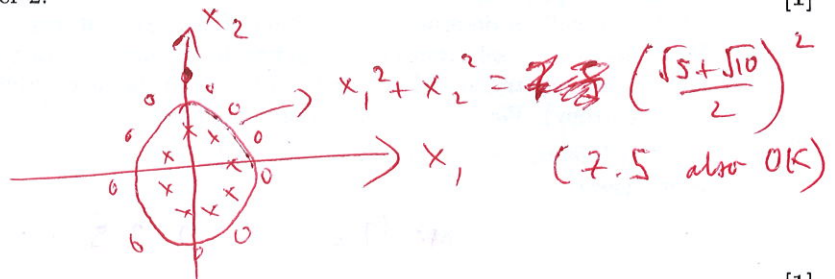 er 2. [1]
x₂
x₁² + x₂² = ((√5 + √10)/2)²
x₁ (7.5 also OK)
[1]